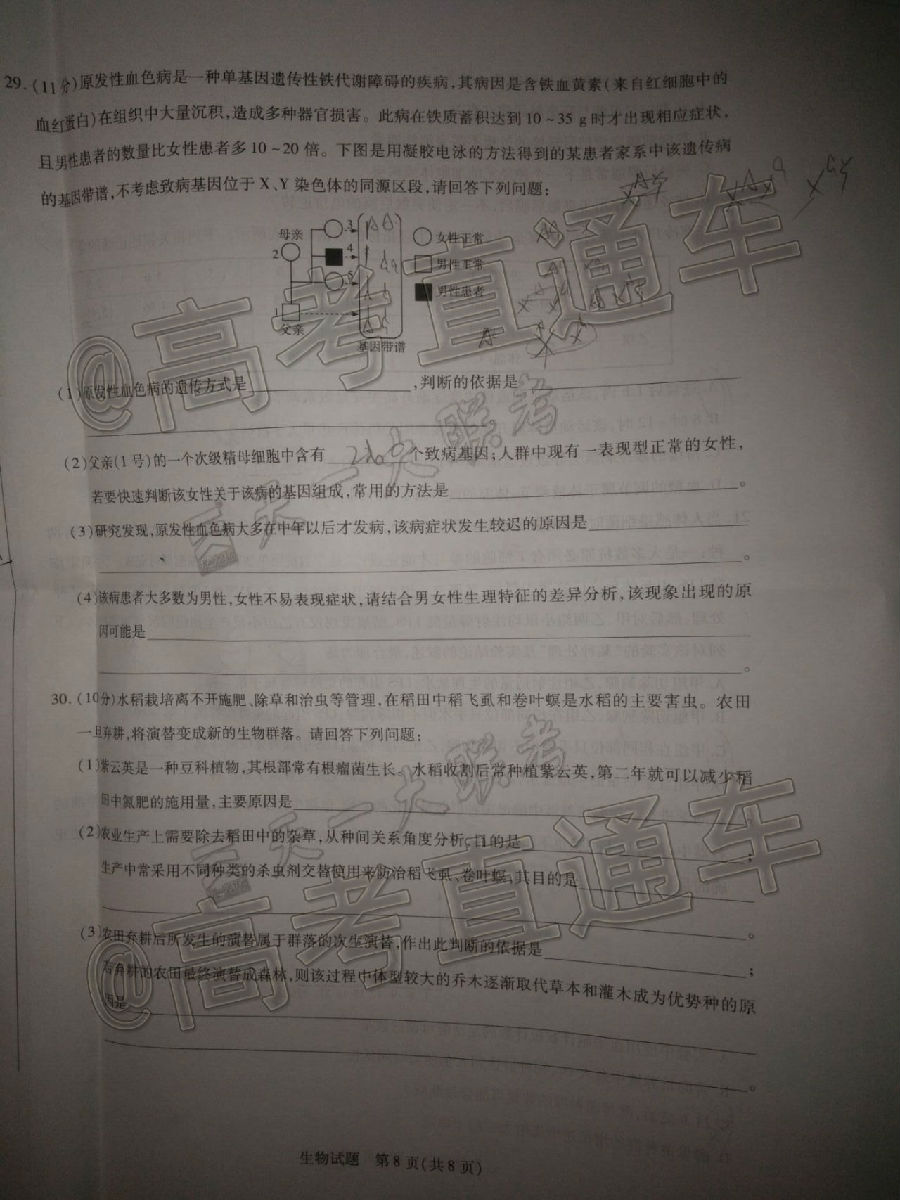 29.(11分)原发性血色病是一种单基因遗传性铁代谢障碍的疾病,其病因是含铁血黄素(来自红细胞中的
血红蛋白)在组织中大量沉积,造成多种器官损害。此病在铁质蓄积达到10~35 g时才出现相应症状,
且男性患者的数量比女性患者多10~20倍。下图是用凝胶电泳的方法得到的某患者家系中该遗传病
的基因带谱,不考虑致病基因位于X、Y染色体的同源区段,请回答下列问题:
母亲
3
女性正常
2
4
男性正常
5
男性患者
1
父亲
基因带谱
(1)原发性血色病的遗传方式是,判断的依据是
。
(2)父亲(1号)的一个次级精母细胞中含有个致病基因;人群中现有一表现型正常的女性,
若要快速判断该女性关于该病的基因组成,常用的方法是。
(3)研究发现,原发性血色病大多在中年以后才发病,该病症状发生较迟的原因是
。
(4)该病患者大多数为男性,女性不易表现症状,请结合男女性生理特征的差异分析,该现象出现的原
因可能是
。
30.(10分)水稻栽培离不开施肥、除草和治虫等管理,在稻田中稻飞虱和卷叶螟是水稻的主要害虫。农田
一旦弃耕,将演替变成新的生物群落。请回答下列问题:
(1)紫云英是一种豆科植物,其根部常有根瘤菌生长。水稻收割后常种植紫云英,第二年就可以减少稻
田中氮肥的施用量,主要原因是。
(2)农业生产上需要除去稻田中的杂草,从种间关系角度分析,目的是;
生产中常采用不同种类的杀虫剂交替使用来防治稻飞虱、卷叶螟,其目的是
。
(3)农田弃耕后所发生的演替属于群落的次生演替,作出此判断的依据是;
若弃耕的农田最终演替成森林,则该过程中体型较大的乔木逐渐取代草本和灌木成为优势种的原
因是
。
生物试题 第8页(共8页)
@高考直通车
天一大联考
@高考直通车
天一大联考